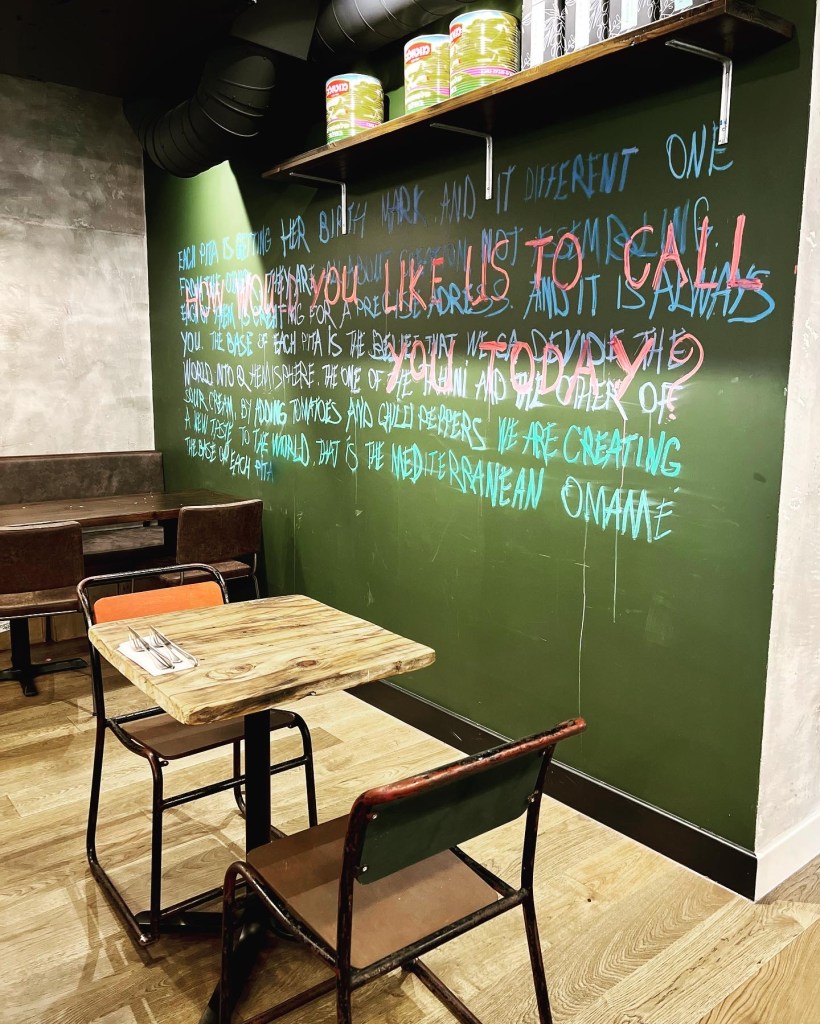 EACH PITA IS GETTING HER BIRTH MARK. AND IT DIFFERENT ONE
FROM THE OTHER. THEY ARE NOT RESEMBLING.
HOW WOULD YOU LIKE US TO CALL
FOR A PRECISE ADRESS. AND IT IS ALWAYS
YOU. THE BASE OF EACH PITA IS THE BELIEF THAT WE CA DEVIDE THE
YOU TODAY?
WORLD INTO Q HEMISPHERE. THE ONE OF THE TAHINI AND THE OTHER OF
SOUR CREAM. BY ADDING TOMATOES AND CHILI PEPPERS WE ARE CREATING
A NEW TASTE TO THE WORLD. THAT IS THE MEDITERRANEAN OMAMÉ
THE BASE ON EACH PITA